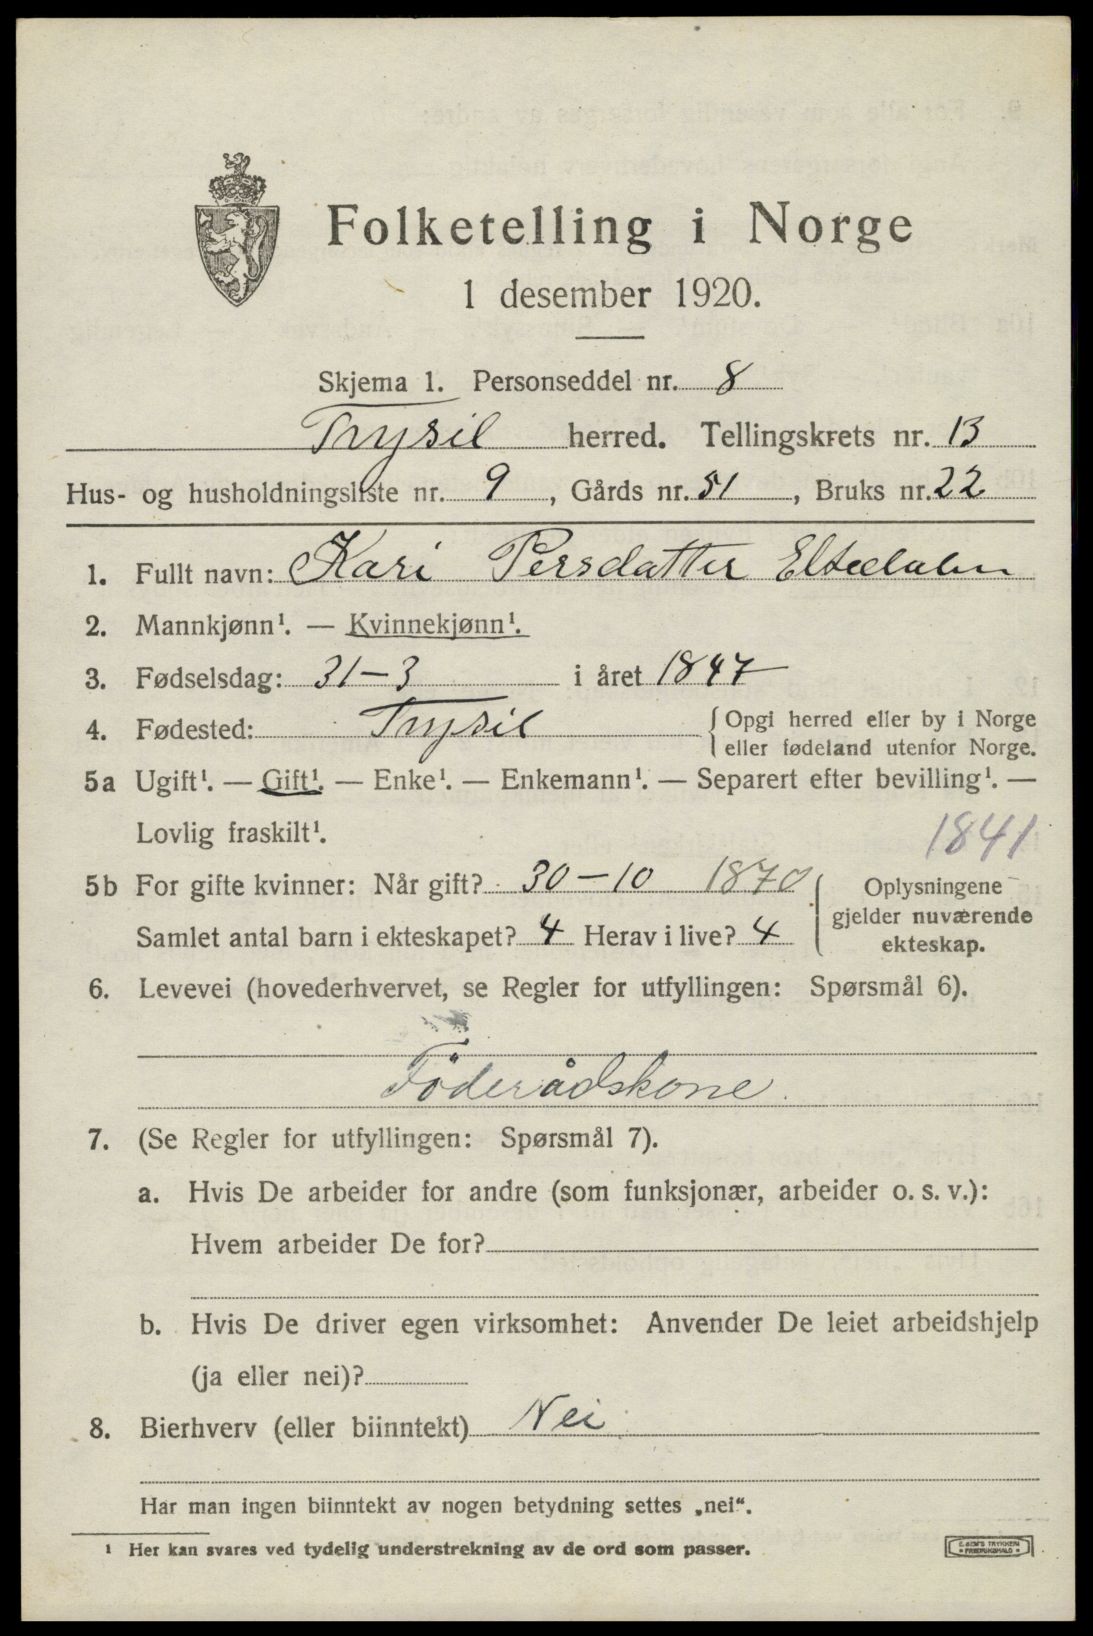 Folketelling i Norge
1 desember 1920.
Skjema 1. Personseddel nr. 8
Trysil herred. Tellingskrets nr. 13
Hus- og husholdningsliste nr. 9, Gårds nr. 51, Bruks nr. 22
1. Fullt navn: Kari Persdatter
2. Mannkjønn¹. — Kvinnekjønn¹.
3. Fødselsdag: 31-3 i året 1847
4. Fødested: Trysil {Opgi herred eller by i Norge
eller fødeland utenfor Norge.
5a Ugift¹. — Gift¹. — Enke¹. — Enkemann¹. — Separert efter bevilling¹. —
Lovlig fraskilt¹.
1841
5b For gifte kvinner: Når gift? 30-10 1870
Samlet antal barn i ekteskapet? 4 Herav i live? 4
Oplysningene
gjelder nuværende
ekteskap.
6. Levevei (hovederhvervet, se Regler for utfyllingen: Spørsmål 6).
Föderådskone.
7. (Se Regler for utfyllingen: Spørsmål 7).
a. Hvis De arbeider for andre (som funksjonær, arbeider o. s. v.):
Hvem arbeider De for?
b. Hvis De driver egen virksomhet: Anvender De leiet arbeidshjelp
(ja eller nei)?
8. Bierhverv (eller biinntekt) Nei
Har man ingen biinntekt av nogen betydning settes „nei“.
¹ Her kan svares ved tydelig understrekning av de ord som passer.